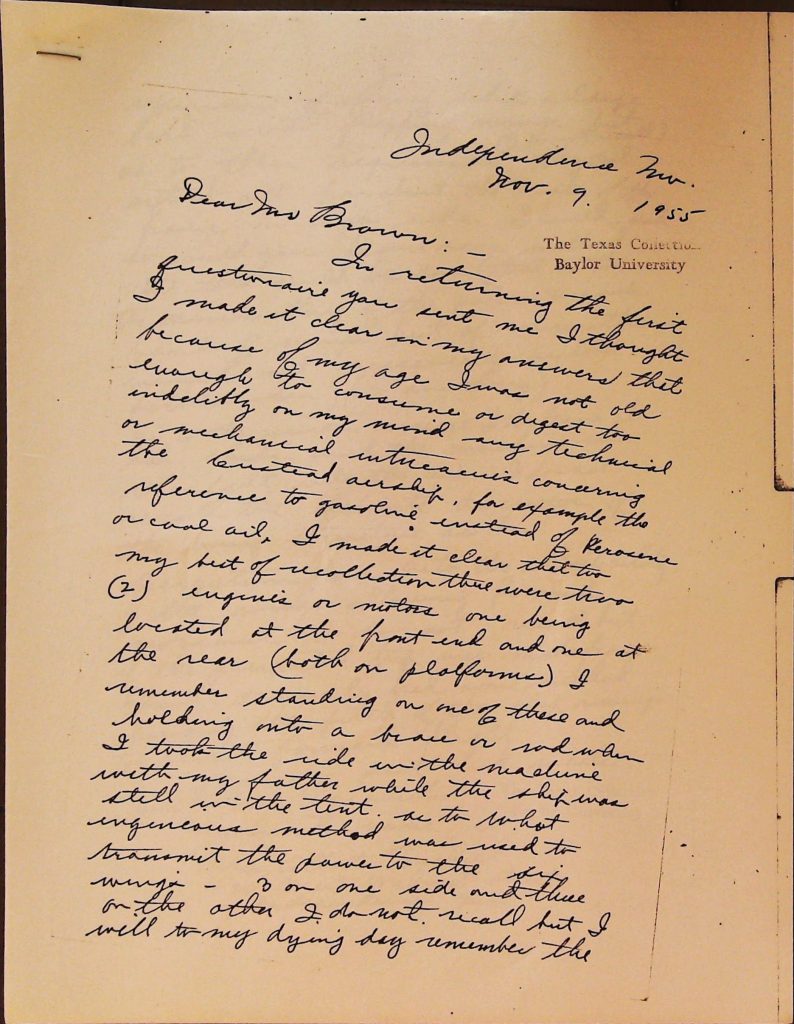 Independence Mo.
Nov. 9. 1955
The Texas Collection
Baylor University
Dear Mr Brown: —
In returning the first
questionaire you sent me I thought
I made it clear in my answers that
because of my age I was not old
enough to consume or digest too
indelibly on my mind any technical
or mechanical intricacies concerning
the Custead airship, for example the
reference to gasoline instead of Kerosene
or coal oil, I made it clear that too
my best of recollection there were two
(2) engines or motors one being
located at the front end and one at
the rear (both on platforms) I
remember standing on one of these and
holding onto a brace or rod when
I took the ride in the machine
with my father while the ship was
still in the tent. as to what
ingeneous method was used to
transmit the power to the six
wings – 3 on one side and three
on the other I do not recall but I
will to my dying day remember the